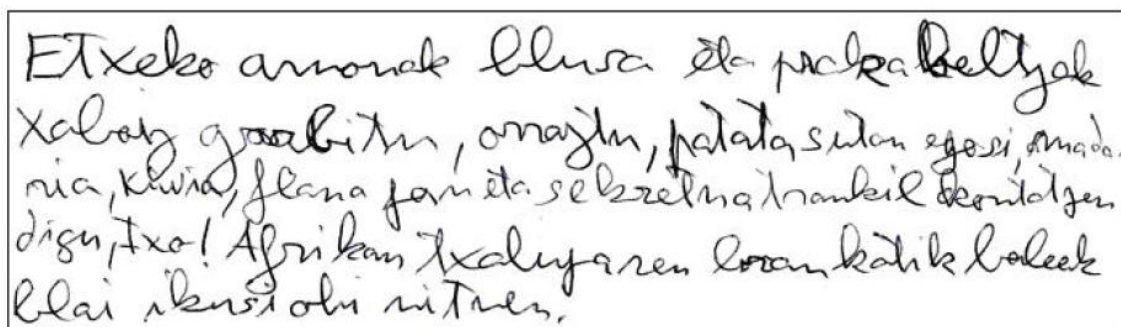 Etxeko amonak blusa eta praka beltzak
xaboiz garbitu, orraztu, patata sutan egosi, mada-
ria, kiwia, flana jan eta sekretua trankil kontatzen
digu, txo! Afrikan txalupa ren leran katik baleak
blai ikusi ohi nituen.